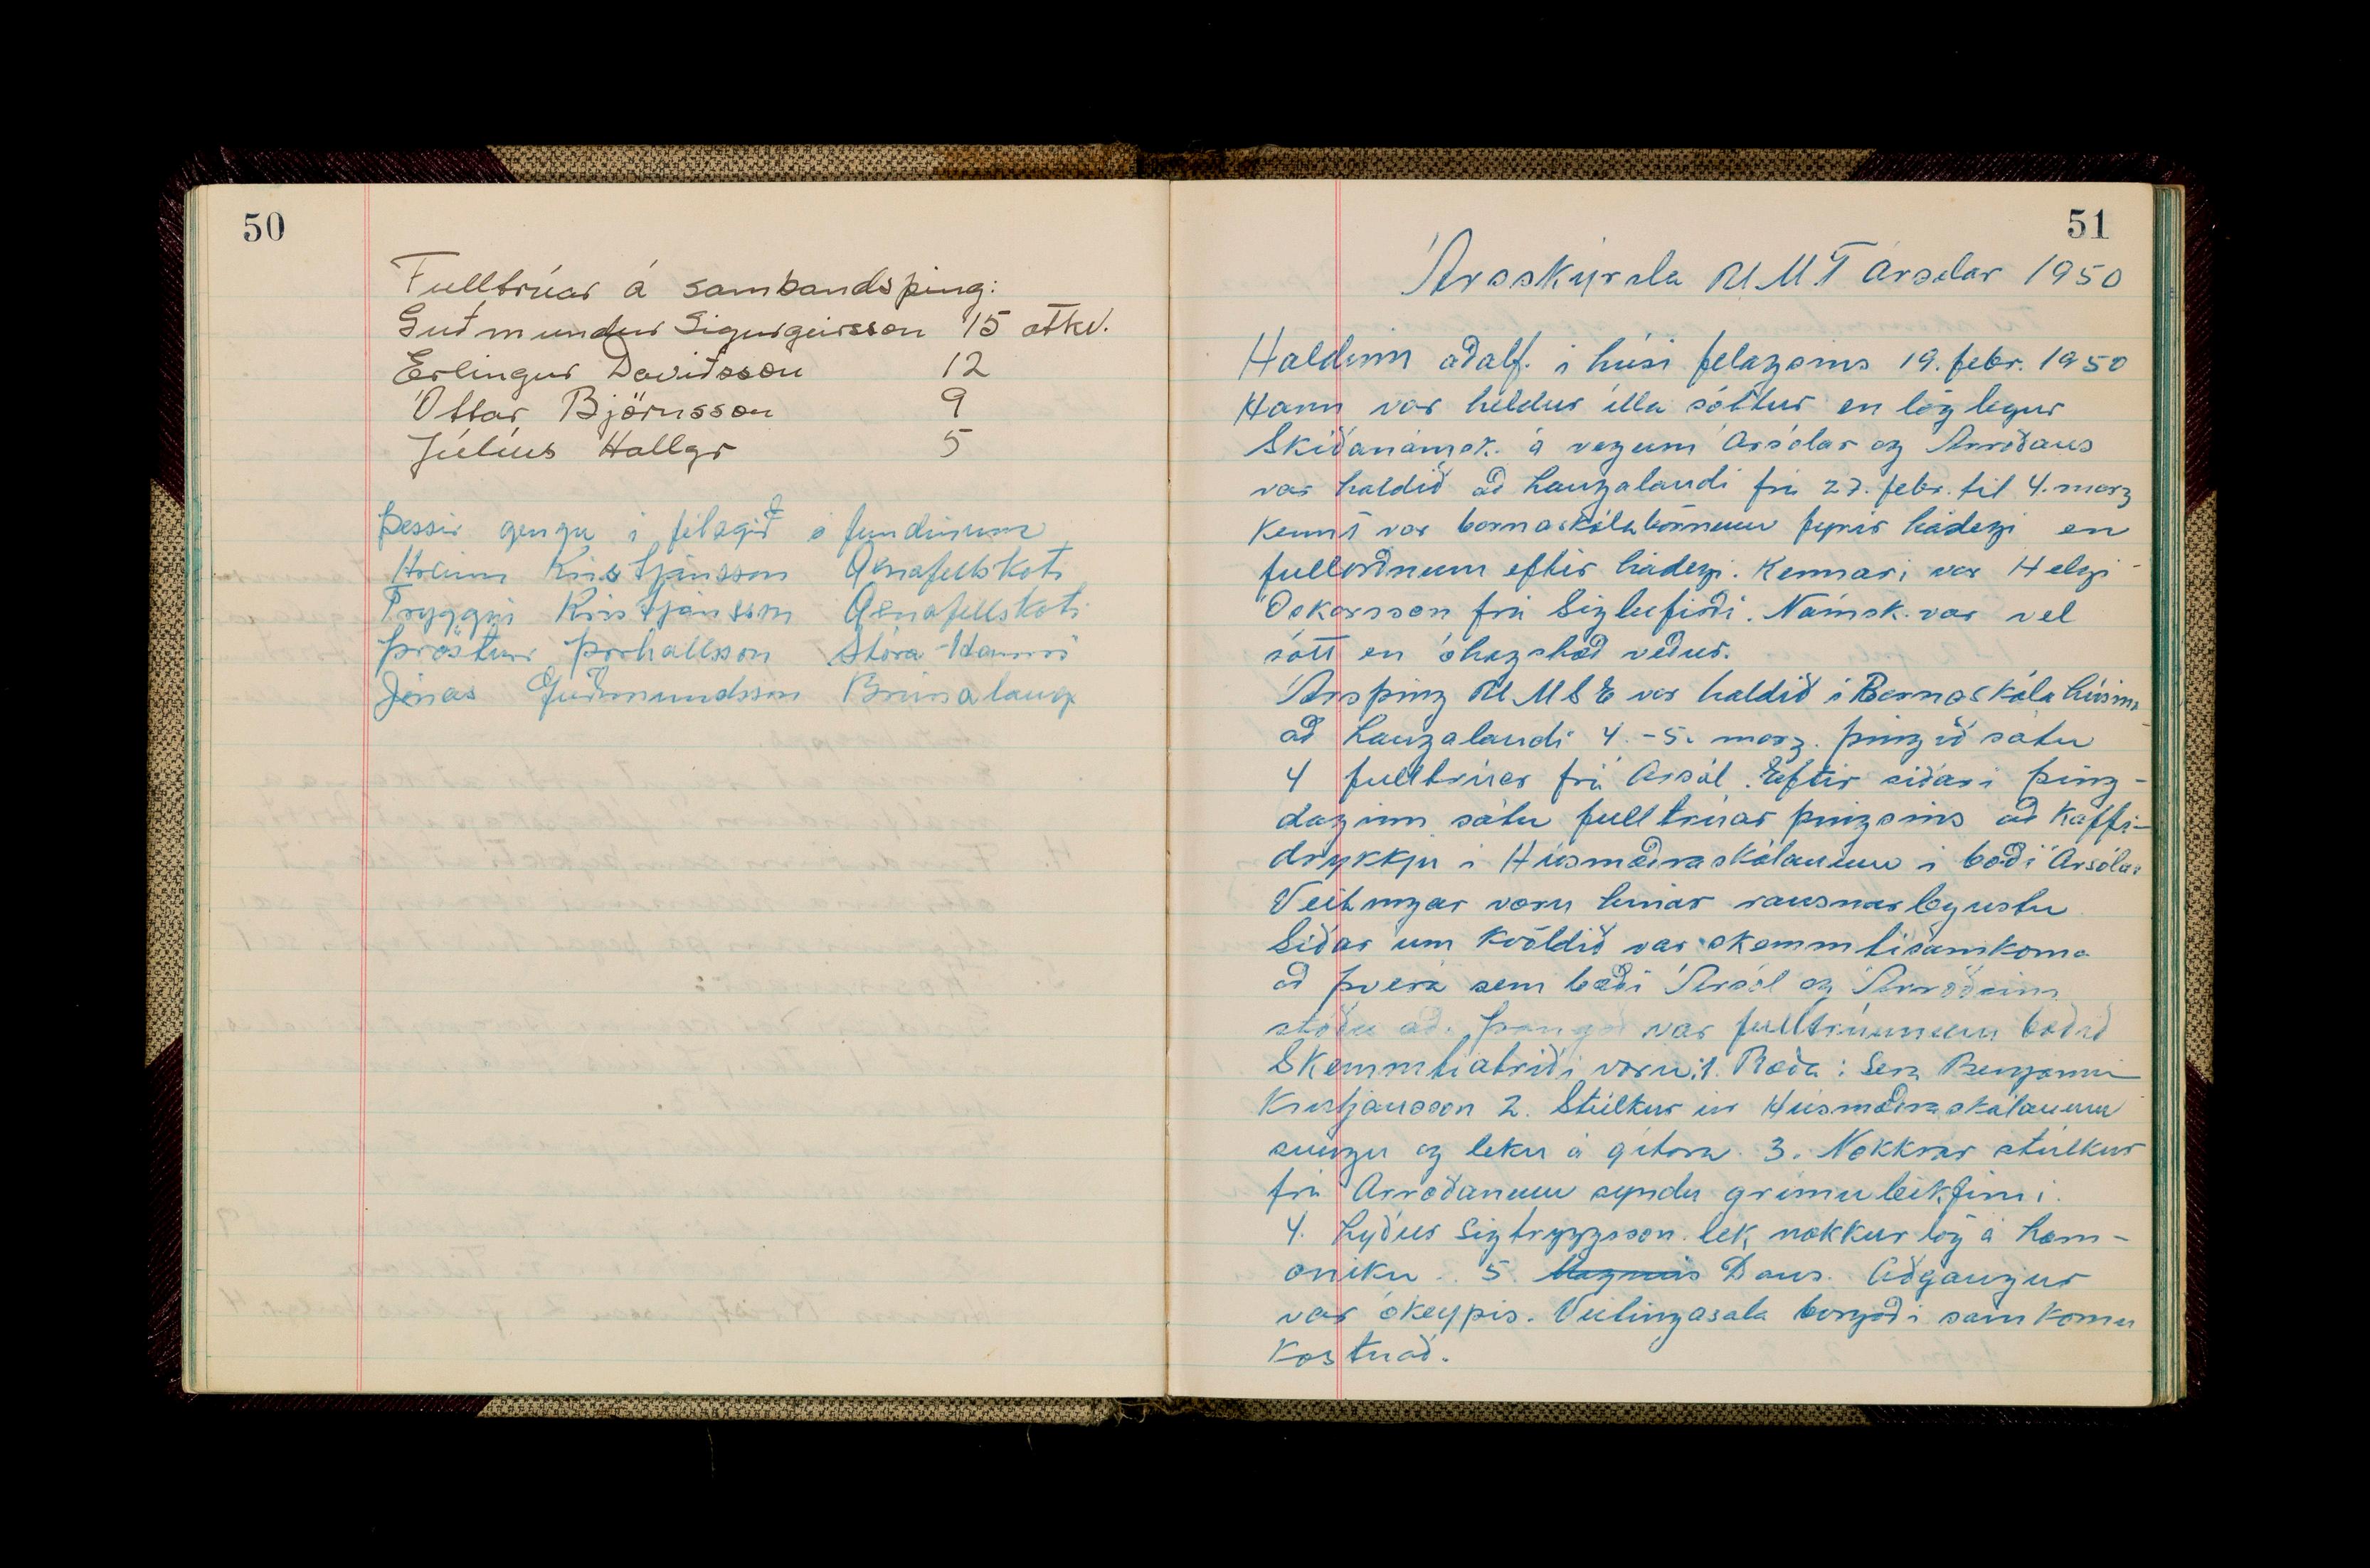 50
Fulltrúar á sambandsþing:
Guðmundur Sigurgeirsson 15 atkv.
Erlingur Davíðsson 12
Óttar Björnsson 9
Júlíus Hallgr 5
Þessir gengu í félagið á fundinum
Hreinn Kristjánsson Gnúpufellskoti
Tryggvi Kristjánsson Gnúpufellskoti
Þröstur Þórhallsson Stóra-Hamri
Jónas Guðmundsson Brúnalaug
51
Ársskýrsla U M F Ársólar 1950
Haldinn aðalf. í húsi félagsins 19. febr. 1950
Hann var heldur illa sóttur en löglegur
Skíðanámsk. á vegum Ársólar og Árroðans
var haldið að Laugalandi frá 27. febr. til 4. marz
Kennt var barnaskólabörnum fyrir hádegi en
fullorðnum eftir hádegi. Kennari var Helgi
Óskarsson frá Siglufirði. Námsk. var vel
sótt en óhagstæð veður.
Ársþing U M S E var haldið í Barnaskólahúsinu
að Laugalandi 4.-5. marz. Þingið sátu
4 fulltrúar frá Ársól. Eftir síðari þing-
daginn sátu fulltrúar þingsins að kaffi-
drykkju í Húsmæðraskólanum í boði Ársólar
Veitingar voru hinar rausnarlegustu
Síðar um kvöldið var skemmtisamkoma
að Þverá sem bæði Ársól og Árroðinn
stóðu að. Þangað var fulltrúunum boðið
Skemmtiatriði voru: 1. Ræða: Séra Benjamín
Kristjánsson 2. Stúlkur úr Húsmæðraskólanum
sungu og léku á gítara. 3. Nokkrar stúlkur
frá Árroðanum sýndu grímuleikfimi.
4. Lýður Sigtryggsson lék nokkur lög á harm-
oniku. 5. Magnús Dans. Aðgangur
var ókeypis. Veitingasala borgaði samkomu
kostnað.